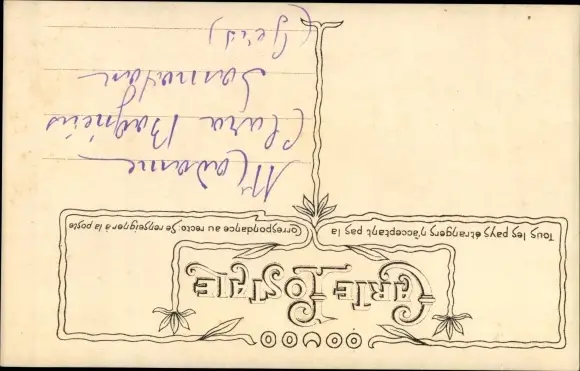 CARTE POSTALE
Tous les pays étrangers n'acceptent pas la Correspondance au recto. Se renseigner à la poste
Madame
Clara Bagnéris
Samatan
(Gers)